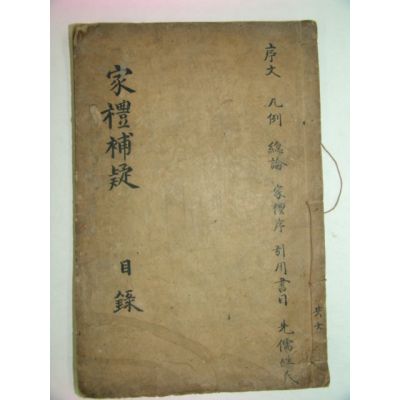 序文 凡例 總論 家禮序 引用書目 先儒姓氏
家禮補疑 目錄
共六